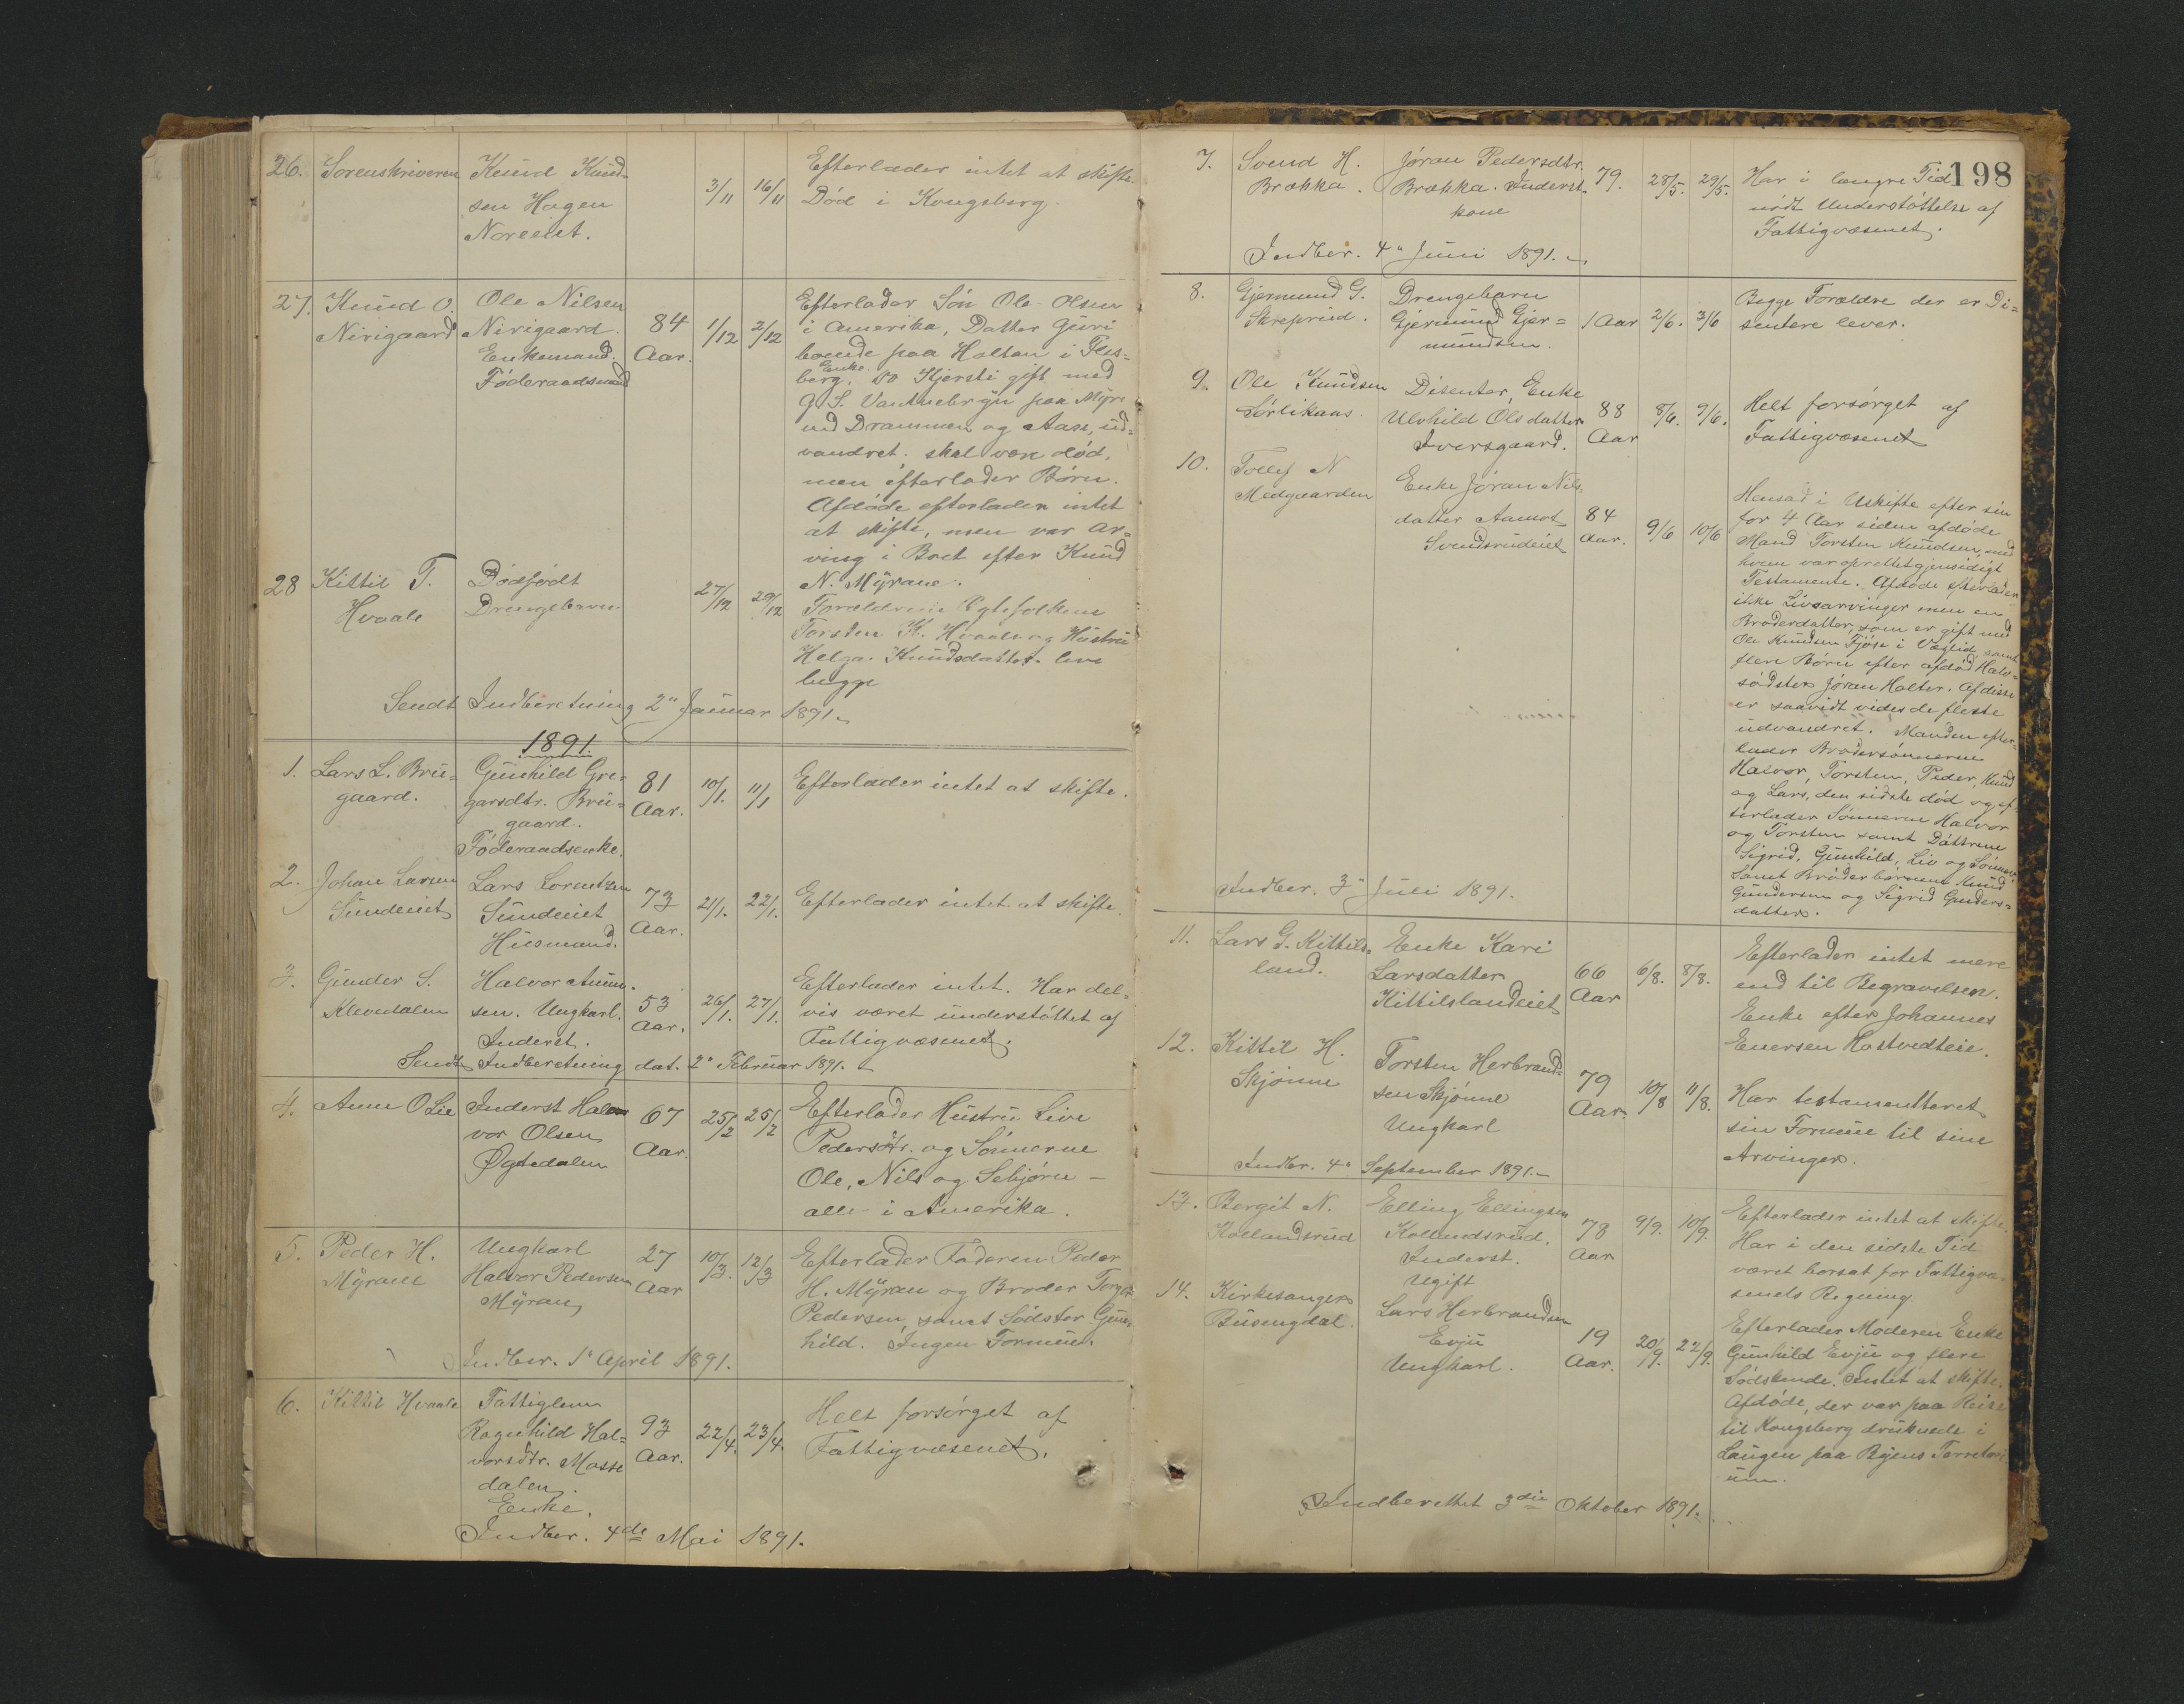 26. Sorenskriveren Knud Knud- 3/11 16/11 Efterlader intet at skifte.
sen Hagen Død i Kongsberg.
Noreeiet.
27. Knud O. Ole Nilsen 84 1/12 2/12 Efterlader Søn Ole Olsen
Nirigaard Nirigaard. Aar. i Amerika, Datter Guri
Enkemand. boende paa Holtan i Fles-
Føderaadsmand berg, Enke. Do Kjersti gift med
G. S. Vannebryn paa Myre
ved Drammen og Aase, ud-
vandret. skal være død,
men efterlader Børn.
Afdøde efterlader intet
at skifte, men var Ar-
ving i Boet efter Knud
N. Myrane.
28 Kittil T. Dødfødt 27/12 29/12 Forældrene Egtefolkene
Hvaale Drengebarn Torsten K. Hvaale og Hustru
Helga Knudsdatter leve
begge
Sendt Indberetning 2" Januar 1891.
1891.
1. Lars L. Bru- Gunhild Gre- 81 10/1. 11/1 Efterlader intet at skifte.
gaard. garsdtr. Bru- Aar.
gaard.
Føderaadsenke.
2. Johan Larsen Lars Lorentzen 73 21/1. 22/1. Efterlader intet at skifte.
Sundeiet Sundeiet Aar.
Husmand.
3. Gunder S. Halvor Amun- 53 26/1. 27/1. Efterlader intet. Har del-
Klevedalen sen. Ungkarl. Aar. vis været understøttet af
Inderst. Fattigvæsenet.
Sendt Indberetning dat. 2" Februar 1891.
4. Anne O Lie Inderst Hal- 67 25/2 25/2 Efterlader Hustru Live
vor Olsen Aar. Pedersdtr. og Sønnerne
Øgtedalen Ole, Nils og Sebjørn -
alle i Amerika.
5. Peder H. Ungkarl 27 10/3. 12/3 Efterlader Faderen Peder
Myrane Halvor Pedersen Aar H. Myran og Broder Torger
Myran Pedersen, samt Södster Gun-
hild. Ingen Formue.
Indber. 1" April 1891.
6. Kittil Hvaale Fattiglem 93 22/4. 23/4. Helt forsørget af
Ragnhild Hal- Aar. Fattigvæsenet.
vorsdtr. Masse
dalen.
Enke.
Indber. 4de Mai 1891.
198
7. Svend H. Jøran Pedersdtr. 79. 28/5. 29/5. Har i længre Tid
Brækka. Brækka. Inderst- nødt Understøttelse af
kone Fattigvæsenet.
Indber. 4" Juni 1891.
8. Gjermund G. Drengebarn 1 Aar 2/6. 3/6 Begge Forældre der er Di-
Skreprud. Gjermund Gjer- sentere lever.
mundsen.
9. Ole Knudsen Disenter, Enke 88 8/6. 9/6. Helt forsørget af
Lørlikaas. Ulvhild Olsdatter Aar Fattigvæsenet
Iversgaard.
10. Tollef N Enke Jøran Nils 84 9/6 10/6 Hensad i Uskifte efter sin
Medgaarden datter Aamot Aar. for 4 Aar siden afdøde
Svendsrudeiet Mand Torsten Knudsen, med
hvem var oprettet gjensidigt
Testamente. Afdøde efterlader
ikke Livsarvinger men en
Broderdatter, som er gift med
Ole Knudsen Fjøse i Væglid, samt
flere Børn efter afdød Halv-
södster Jøran Holter. Af disse
er saavidt vides de fleste
udvandret. Manden efter-
lader Brodersønnerne
Halvor, Torsten, Peder, Knud
og Lars, den sidste død og ef-
terlader Sønnerne Halvor
og Torsten samt Døttrene
Sigrid, Gunhild, Liv og
Samt Broderbørnene Knud
Gundersen og Sigrid Gunders-
datter.
Indber. 3" Juli 1891.
11. Lars G. Kittils- Enke Kari 66 6/8. 8/8. Efterlader intet mere
land. Larsdatter Aar end til Begravelsen.
Kittilslandeiet Enke efter Johannes
Enersen Hostvedteie.
12. Kittil H. Torsten Herbrand- 79 10/8 11/8. Har testamenteret
Skjønne sen Skjønne Aar. sin Formue til sine
Ungkarl Arvinger.
Indber. 4" September 1891.
13. Bergit N. Elling Ellingsen 78 9/9. 10/9. Efterlader intet at skifte.
Kollandsrud Kollandsrud. Aar Har i den sidste Tid
Inderst. været borsat for Fattigvæ-
Ugift senets Regning.
14. Kirkesanger Lars Herbrandsen 19 20/9. 22/9. Efterlader Moderen Enke
Busengdal. Evju Aar. Gunhild Evju og flere
Ungkarl. Södskende. Intet at skifte.
Afdøde, der var paa Reise
til Kongsberg druknede i
Laugen paa Byens Territori-
um.
Indberettet 3die Oktober 1891.